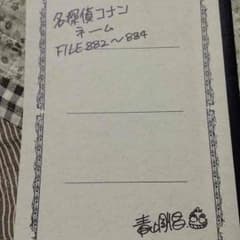 名探偵コナン
ネーム
FILE 882〜884
青山剛昌